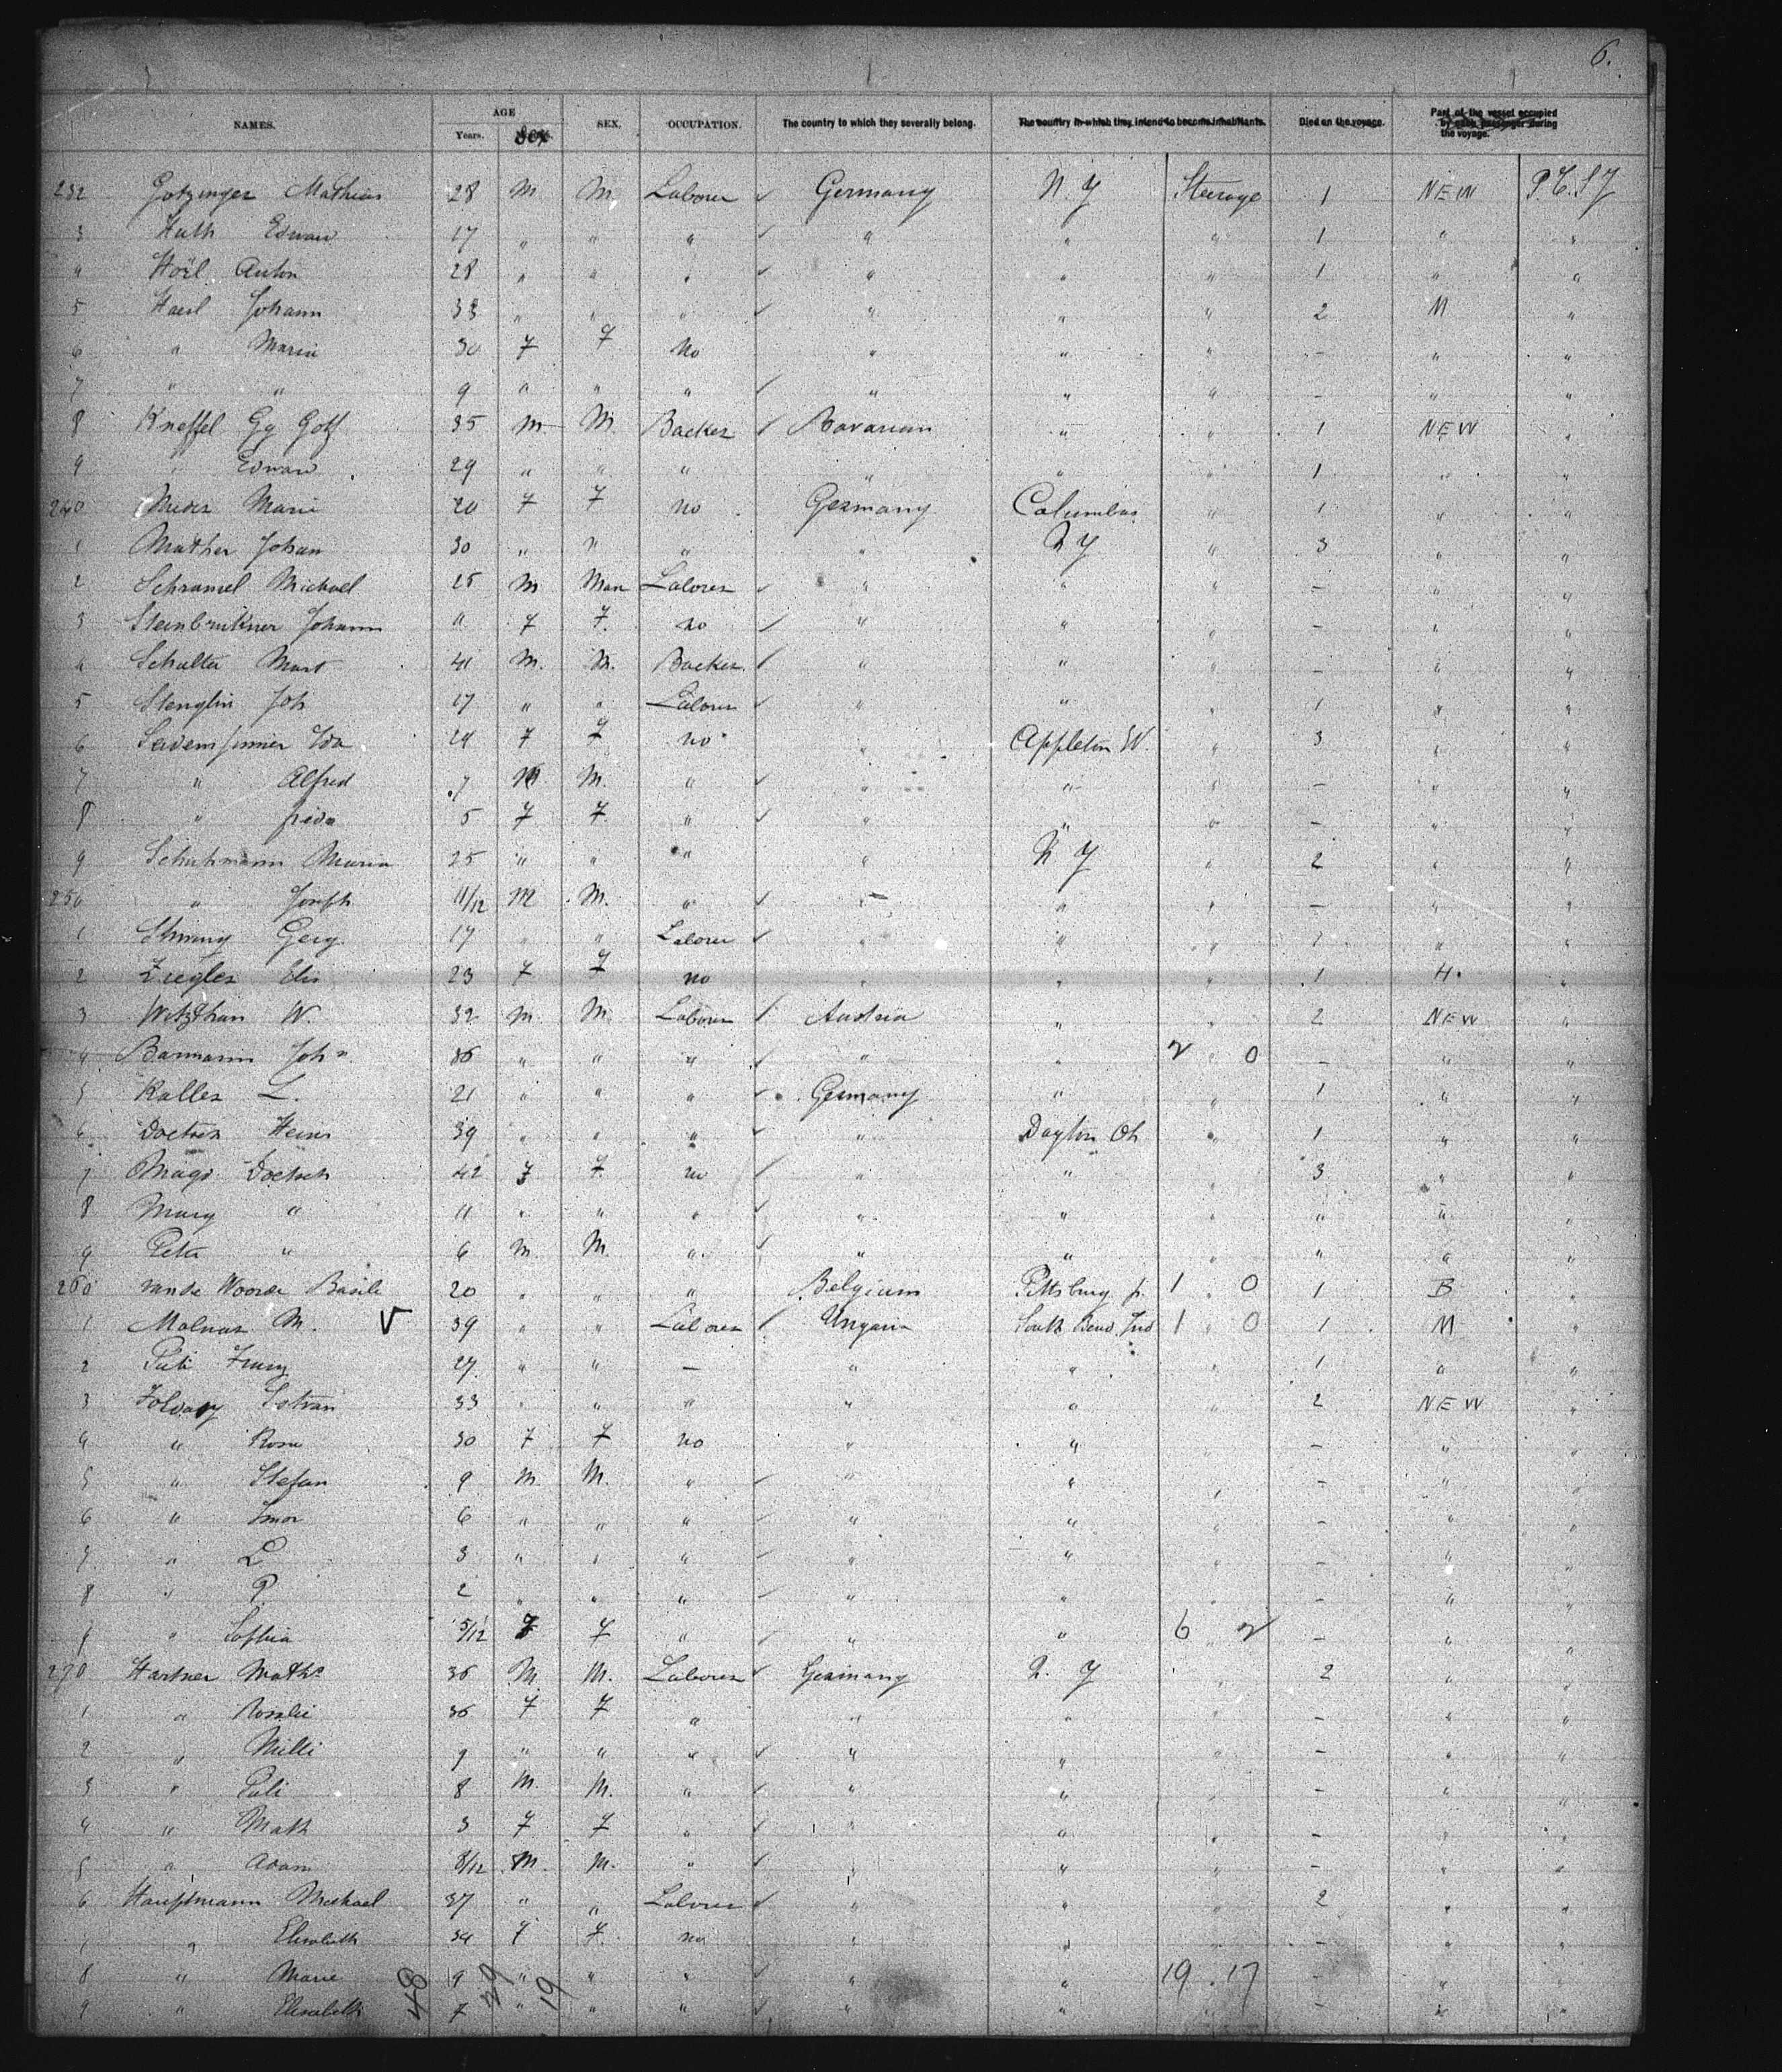 6.
NAMES. AGE Years. Sex SEX. OCCUPATION. The country to which they severally belong. The country in which they intend to become inhabitants. Died on the voyage. Part of the vessel occupied by each passenger during the voyage.
232 Gotzinger Mathias 28 M M. Laborer ✓ Germany N. Y Steerage 1 NEW
3 Huth Edward 17 " " " ✓ " " " 1 " "
4 Anton 28 " " " ✓ " " " 1 " "
5 Haesl Johann 33 " " " ✓ " " " 2 M "
6 " Maria 30 F F no " " " - " "
7 " " 9 " " " ✓ " " " - " "
8 Kneffel Gg 35 M M. Backer ✓ Bavarian " " 1 NEW "
9 " Edward 29 " " " " " " 1 " "
240 Marie 20 F F no Germany Columbus " 1 " "
1 Mather Johan 30 " " " " N Y " 3 " "
2 Schramel Michael 25 M Man Laborer ✓ " " " - " "
3 Steinbrukner Johann 11 F F. no ✓ " " " - " "
4 Schulter 41 M. M. Backer ✓ " " " - " "
5 Stenglin Joh 17 " " Laborer ✓ " " " 1 " "
6 Ida 24 F F no " Appleton W. " 3 " "
7 " Alfred 7 M M. " ✓ " " " - " "
8 " frida 5 F F. " ✓ " " " - " "
9 Schuhmann Maria 25 " " " " N Y " 2 " "
250 " Joseph 11/12 M M. " ✓ " " " - " "
1 Georg 17 " " Laborer ✓ " " " 1 " "
2 Ziegler Elis 23 F F no " " " 1 H. "
3 W. 32 M. M. Laborer ✓ Austria " " 2 NEW "
4 Barmann Joh 36 " " " ✓ " " 2 " 0 - " "
5 Kaller L. 21 " " " ✓ Germany " " 1 " "
6 Doetsch 39 " " " ✓ " Dayton Oh " 1 " "
7 Magd. Doetsch 42 F F no ✓ " " " 3 " "
8 Mary " 11 " " " ✓ " " " " " "
9 Peter " 6 M. M. " ✓ " " " " " "
260 Basile 20 " " " Belgium Pittsburg p. 1 " 0 1 B "
1 Molnar M. V 39 " " Laborer ✓ Ungarn South Bend Ind 1 " 0 1 M "
2 27 " " - " " " 1 " "
3 Foldary Istvan 33 " " " " " 2 NEW "
4 " Rosa 30 F F no " " - " "
5 " Stefan 9 M. M. " ✓ " " " - " "
6 " 6 " " " ✓ " " " - " "
7 " L 3 " " " ✓ " " " - " "
8 " P. 2 " " " ✓ " " " - " "
9 " Sophia 5/12 F F " ✓ " " 6 " 2 - " "
270 Hartner Math 36 M. M. Laborer ✓ Germany N. Y " 2 " "
1 " Rosalie 36 F F " " " " - " "
2 " Milli 9 " " " ✓ " " " - " "
3 " 8 M M. " ✓ " " " - " "
4 " Math 3 F F " ✓ " " " - " "
5 " Adam 8/12 M. M. " ✓ " " " - " "
6 Hauptmann Michael 37 " " Laborer ✓ " " 2 " "
7 " Elisabeth 34 F F. no " " " - " "
8 " Marie 9 " " " ✓ " " 19 . 17 - " "
9 " Elisabeth 7 " " " ✓ " " - " "
48 29 19